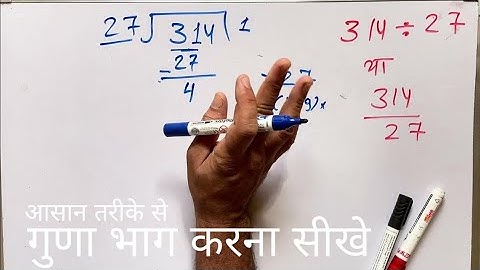 27 ) 314 ( 1
27
4
314 ÷ 27
या
314
27
आसान तरीके से
गुणा भाग करना सीखे